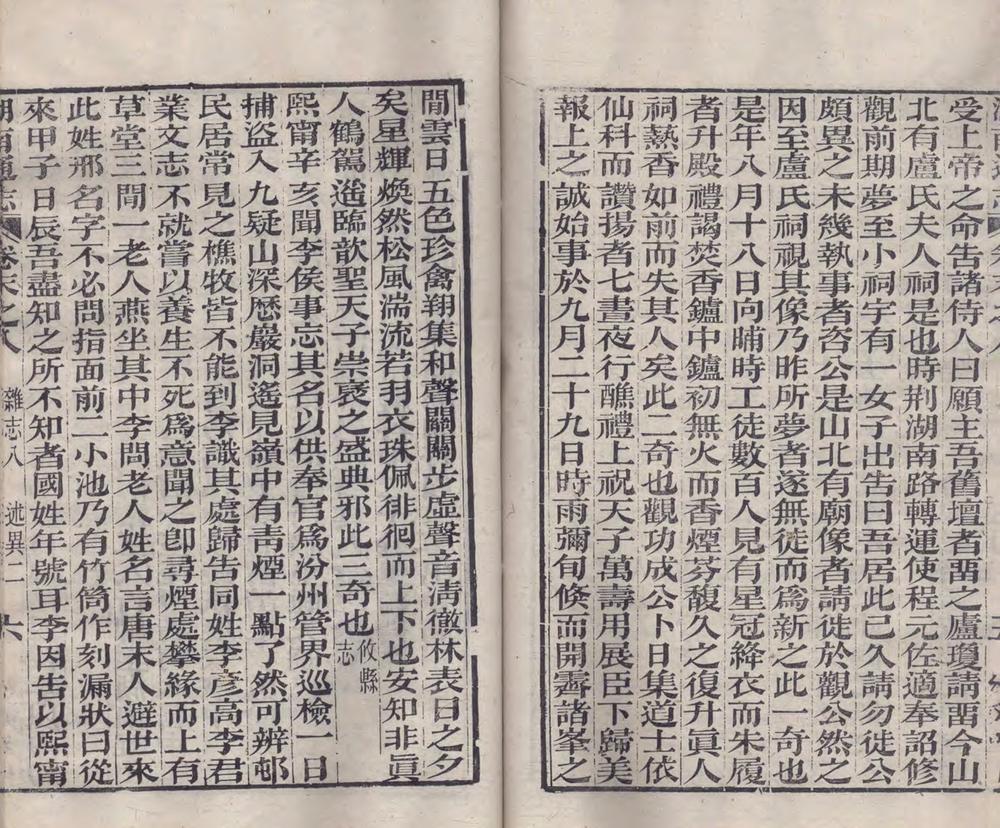 受上帝之命告諸侍人曰願主吾舊壇者畱之盧瓊請畱今山
北有盧氏夫人祠是也時荆湖南路轉運使程元佐適奉詔修
觀前期夢至小祠宇有一女子出告曰吾居此已久請勿徙公
頗異之未幾執事者咨公是山北有廟像者請徙於觀公然之
因至盧氏祠視其像乃昨所夢者遂無徒而爲新之此一奇也
是年八月十八日向晡時工徒數百人見有星冠絳衣而朱履
者升殿禮謁焚香鑪中鑪初無火而香煙芬馥久之復升眞人
祠熱香如前而失其人矣此二奇也觀功成公卜日集道士依
仙科而讚揚者七晝夜行醮禮上祝天子萬壽用展臣下歸美
報上之誠始事於九月二十九日時雨彌旬倏而開霽諸峯之
閒雲日五色珍禽翔集和聲關關步虛聲音淸徹林表日之夕
矣星輝煥然松風湍流若羽衣珠佩徘徊而上下也安知非眞
人鶴駕遙臨歆聖天子崇襃之盛典邪此三奇也 攸縣志
熙甯辛亥聞李侯事忘其名以供奉官爲汾州管界巡檢一日
捕盜入九疑山深歷巖洞遙見嶺中有靑煙一點了然可辨邨
民居常見之樵牧皆不能到李識其處歸告同姓李彥高李君
業文志不就嘗以養生不死爲意聞之卽尋煙處攀緣而上有
草堂三間一老人燕坐其中李問老人姓名言唐末人避世來
此姓邢名字不必問指面前二小池乃有竹筒作刻漏狀曰從
來甲子日辰吾盡知之所不知者國姓年號耳李因告以熙甯
湖南通志 卷末之八 雜志八 述異二 六